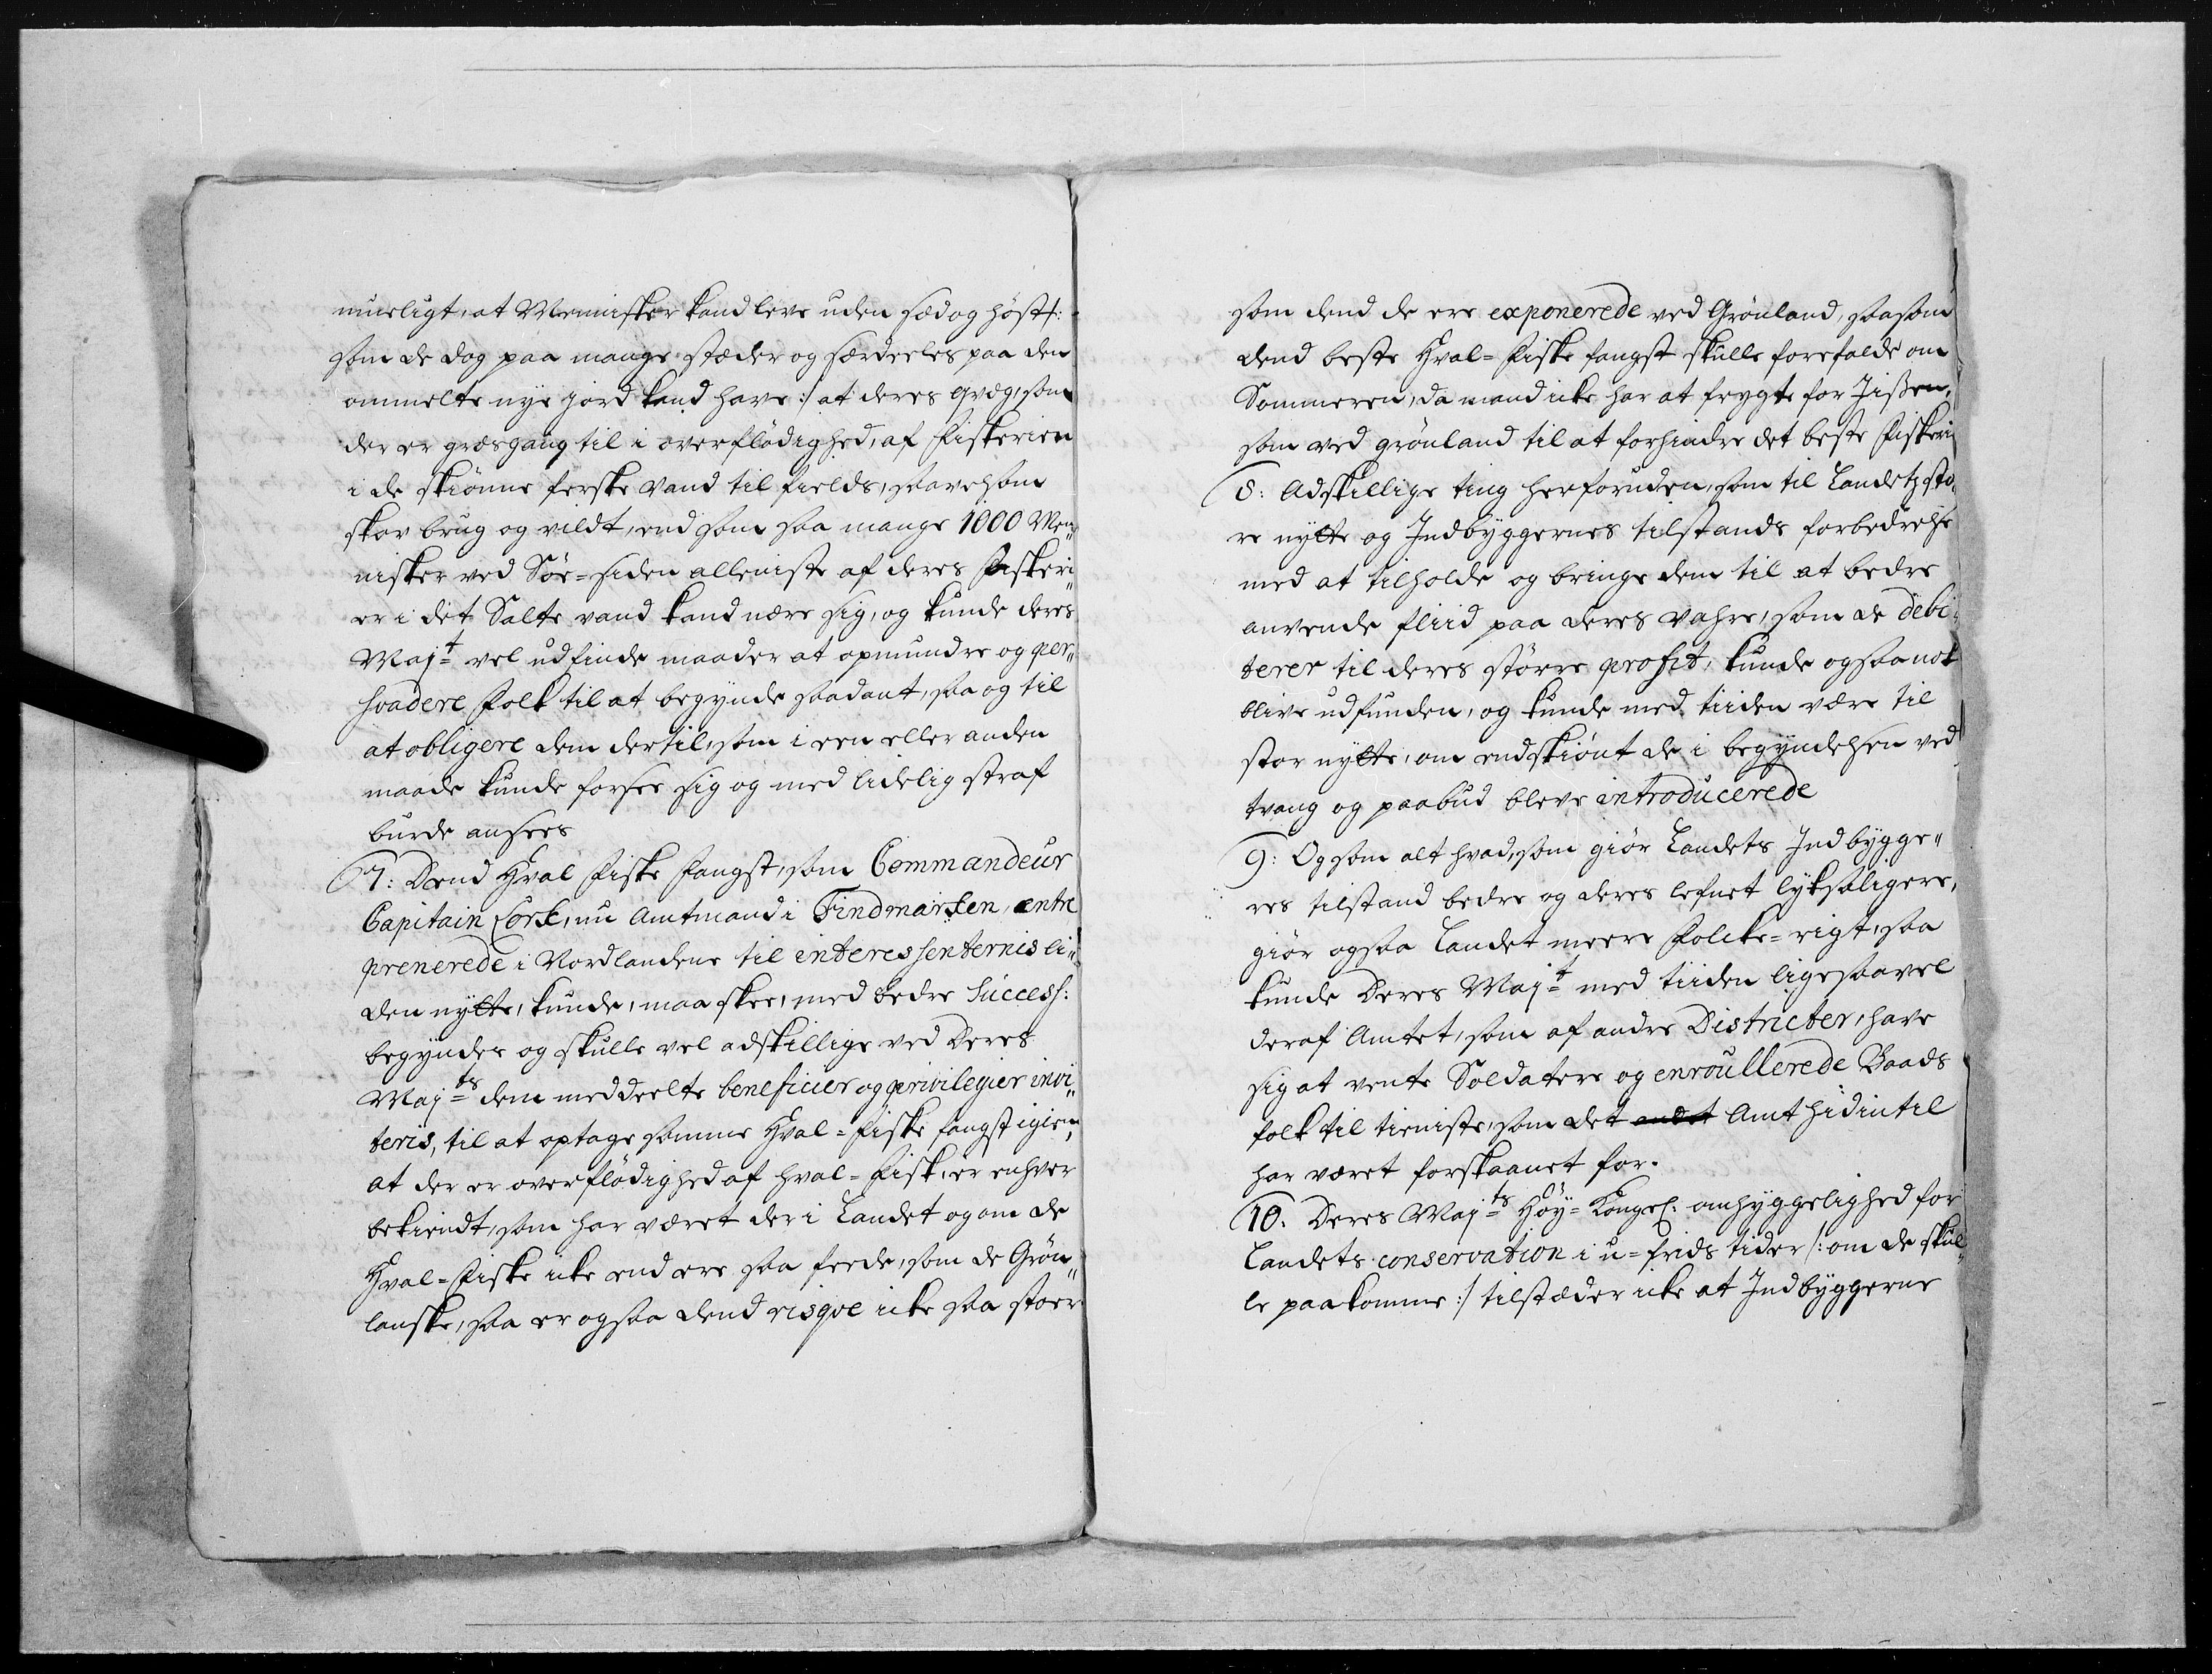 mueligt, at Mennisker kand leve uden sæd og høst /:
som de dog paa mange stæder og særdeeles paa den
ommelte nye jord kand have :/ at deres qvæg, som
der er græsgang til i overflödighed, af Fiskerien
i de skiönne ferske vand til fields, saavelsom
skov brug og vildt, end som saa mange 1000 Men„
nisker ved Söe=siden alleniste af deres Fiskeri„
er i det Salte vand kand nære sig, og kunde deres
Majt vel udfinde maader at opmundre og per„
svadere Folk til at begynde saadant, saa og til
at obligere dem dertil, som i een eller anden
maade kunde forsee sig og med lidelig straf
burde ansees
7: Dend Hval Fiske Fangst, som Commandeur
Capitain Lork, nu Amtmand i Findmarken, entre
prenerede i Nordlandene til interessenternis li„
den nytte, kunde, maa skee, med bedre Success:
begyndes og skulle vel adskillige ved Deres
Majts dem meddeelte beneficier og privilegier invi„
teris, til at optage samme Hval=Fiske fangst igien,
at der er overflödighed af Hval=Fisk, er enhver
bekiendt, som har været der i Landet og om de
Hval=Fiske icke end ere saa feede, som de Grön„
lanske, saa er ogsaa dend risqve icke saa stoer
som dend de ere exponerede ved Grönland, saasom
dend beste Hval=Fiske fangst skulle forefalde om
Sommeren, da mand icke har at frygte for Jissen,
som ved grönland til at forhindre det beste Fiskeri
8: Adskillige ting herforuden, som til Landetz stö„
re nytte og Indbyggernes tilstands forbedrelse
med at tilholde og bringe dem til at bedre
anvende fliid paa deres vahre, som de debi„
terer til deres större profit, kunde ogsaa nok
blive udfunden, og kunde med tiiden være til
stor nytte, om endskiönt de i begyndelsen ved
tvang og paabud bleve introducerede
9: Og som alt hvad, som giör Landets Indbygge„
res tilstand bedre og deres lefnet lyksaligere,
giör ogsaa Landet meere Folcke=rigt, saa
kunde Deres Majt med tiiden ligesaavel
deraf Amtet, som af andre Districter, have
sig at vente Soldatere og enroullerede Baads
folk til tieniste, som det andet Amt hidintil
har været forskaanet for.
10. Deres Majts Höy=Kongel: omhyggelighed for
Landets conservation i u=frids tider /: om de skul„
le paakomme :/ tilstæder icke at Indbyggerne